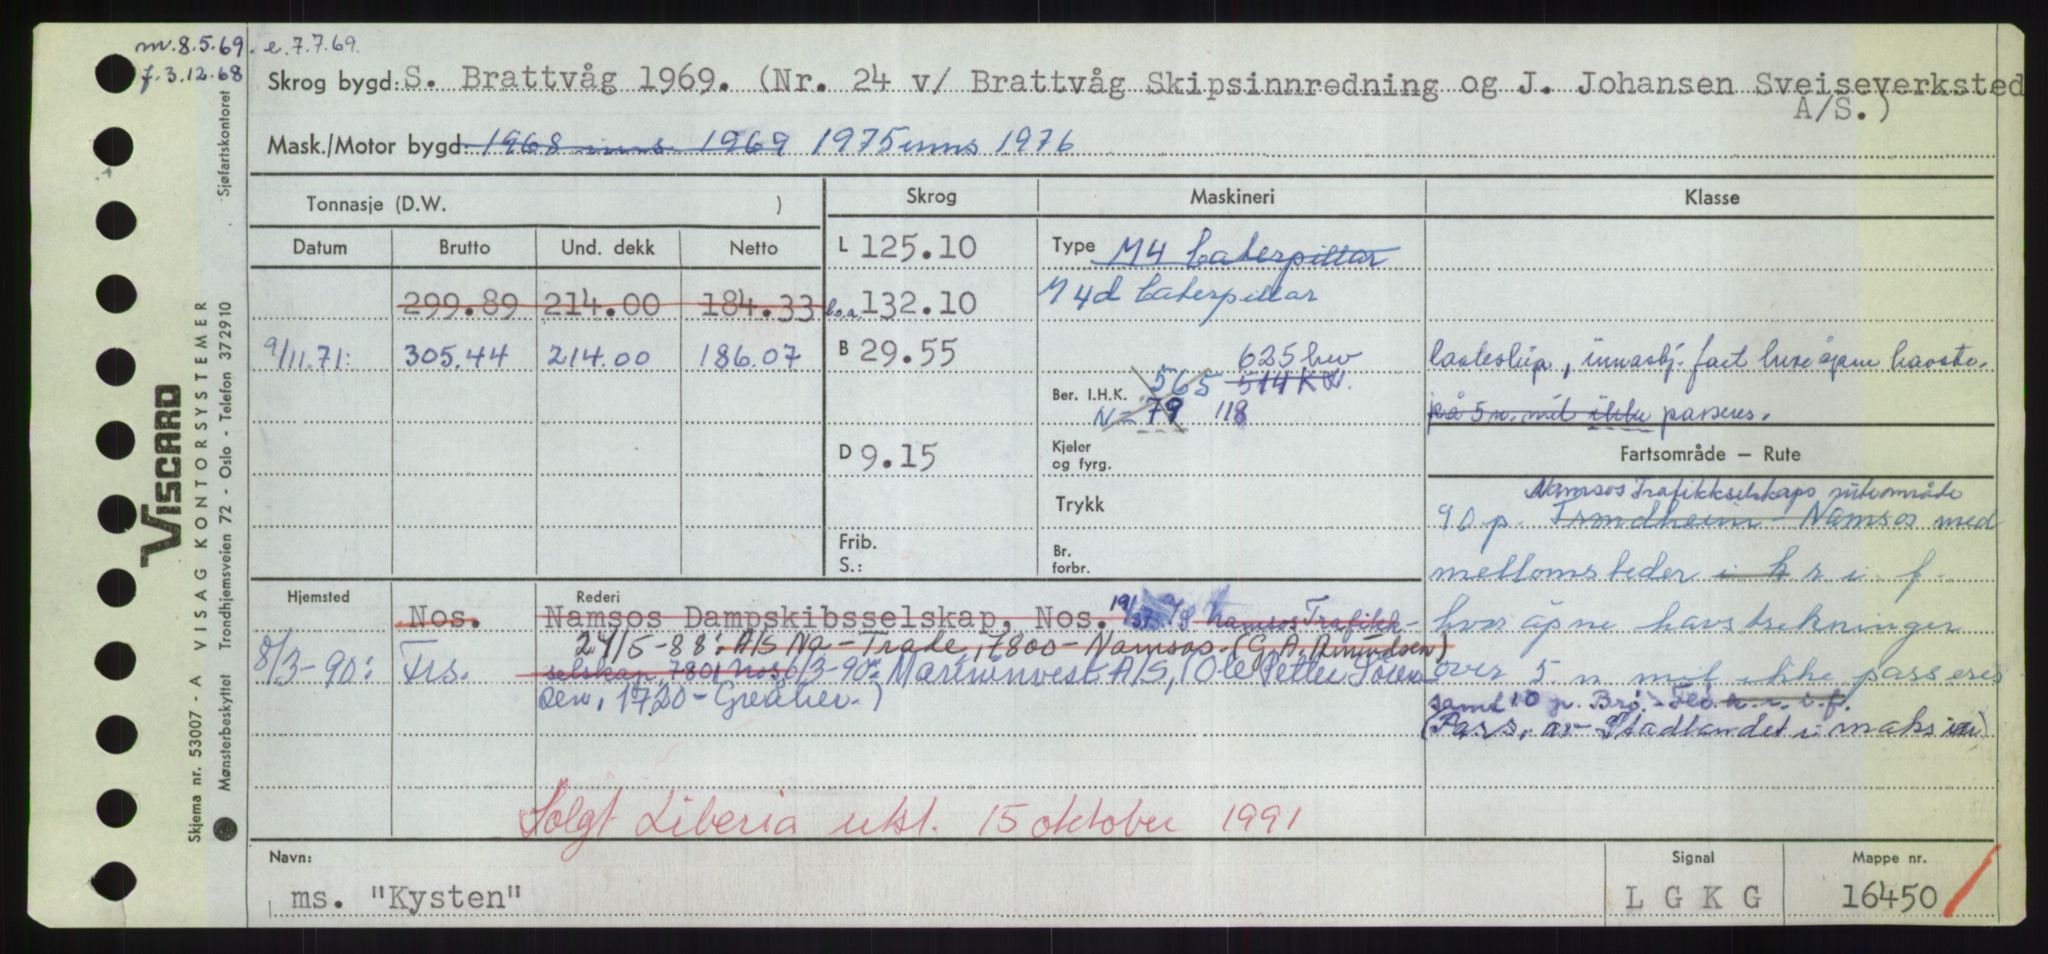 m. 8.5.69. e. 7.7.69.
f. 3.12.68
Skrog bygd: S. Brattvåg 1969. (Nr. 24 v/ Brattvåg Skipsinnredning og J. Johansen Sveiseverksted
A/S.)
Mask./Motor bygd: 1968 inns. 1969 1975 inns 1976
Tonnasje (D.W. )
Skrog
Maskineri
Klasse
Datum Brutto Und. dekk Netto
L 125.10
Type M4 Caterpillar
299.89 214.00 184.33
l.o.a. 132.10
M 4d Caterpillar
9/11.71: 305.44 214.00 186.07
B 29.55
625 hev
Ber. I.H.K. 565 514 KW.
N = 79 118
lasteskip, innasbj. fart hvor åpne havstr.
på 5 n. mil ikke passeres.
D 9.15
Kjeler
og fyrg.
Fartsområde — Rute
Trykk
Namsos Trafikkselskaps ruteområde
90 p. Trondheim - Namsos med
Frib.
S.:
Br.
forbr.
mellomsteder i k r. i. f.
Hjemsted
Rederi
Nos. Namsos Dampskibsselskap, Nos. A/S Namsos Trafikk-
hvor åpne havstrekninger
24/5-88: A/S Na-Trade, 7800-Namsos. (G. A. Amundsen)
8/3-90: Frs. selskap, 7801 Nos. 6/3-90: Marininvest A/S, (Ole Petter Soren
over 5 n mil ikke passeres
sen, 1720-Greåker.)
samt 10 p. Brø.-Flo. k. r. i. f.
(Pass. av Stadlandet i maks
Solgt Liberia utsl. 15 oktober 1991
Navn:
ms. "Kysten"
Signal
L G K G
Mappe nr.
16450
VISCARD
A VISAG KONTORSYSTEMER
Skjema nr. 53007 - A
Mønsterbeskyttet Trondhjemsveien 72 - Oslo - Telefon 37 29 10
Sjøfartskontoret